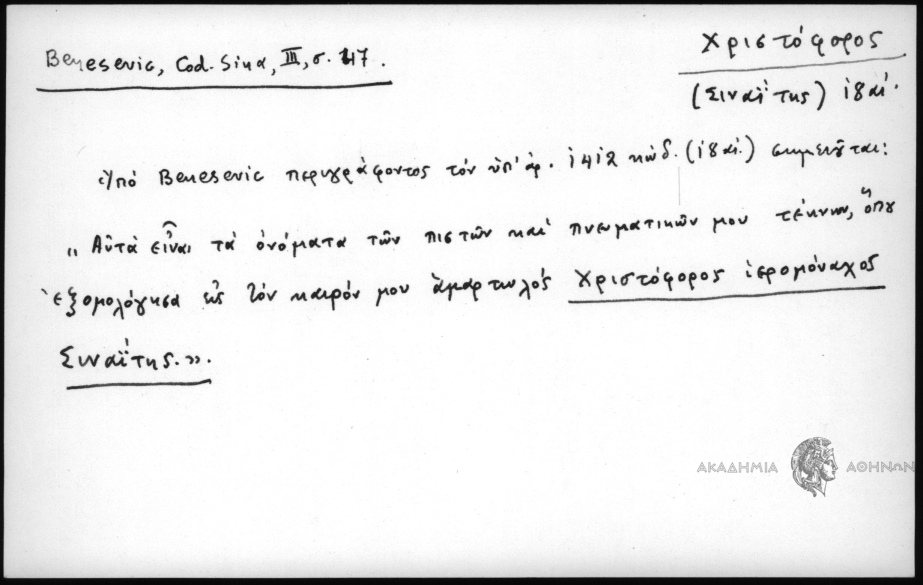 Benesevic, Cod. Sina, III, σ. 117.
Χριστόφορος
(Σιναΐτης) ιδ' αἰ.
Ὑπό Benesevic περιγράφοντος τόν ὑπ' ἀρ. 1412 κώδ. (ιδ' αἰ.) σημειοῦται:
„ Αὐτά εἶναι τά ὀνόματα τῶν πιστῶν καί πνευματικῶν μου τέκνων, ὅπου
ἐξομολόγησα εἰς τόν καιρόν μου ἁμαρτωλός Χριστόφορος ἱερομόναχος
Σιναΐτης.».
ΑΚΑΔΗΜΙΑ ΑΘΗΝΩΝ